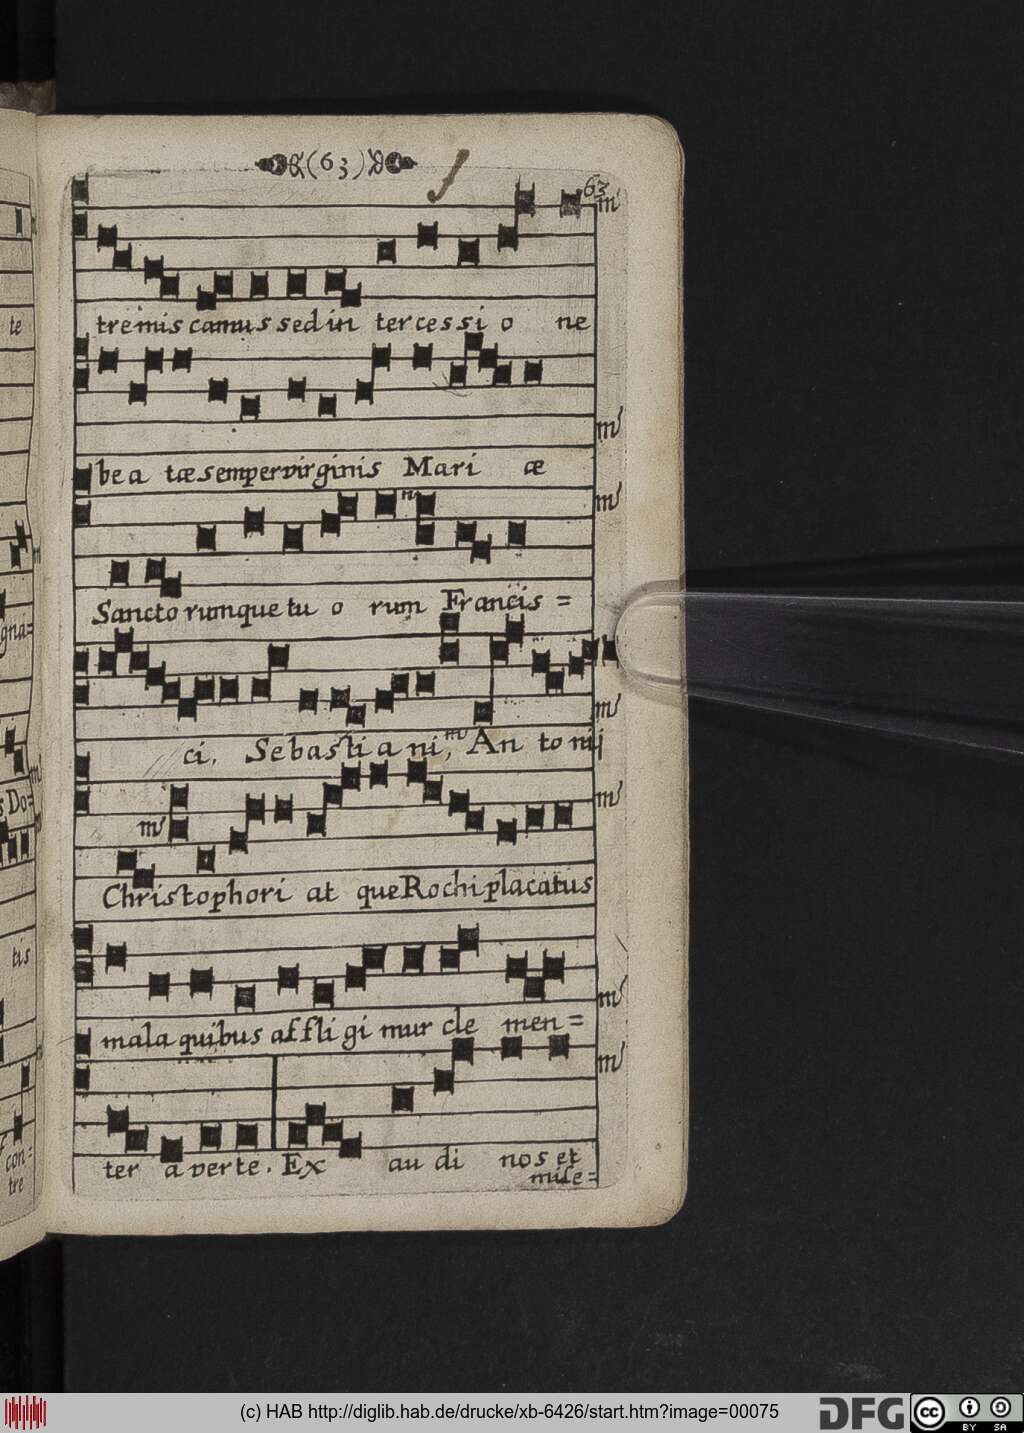 (63)
63
tremiscamus sed in tercessi o ne
bea tæ semper virginis Mari æ
Sancto rumque tu o rum Francis=
ci, Sebasti a ni, An to nij
Christophori at que Rochi placatus
mala quibus affligi mur cle men=
ter averte. Ex au di nos et
mise=
te
gna=
s Do=
tis
con=
tre
(c) HAB http://diglib.hab.de/drucke/xb-6426/start.htm?image=00075
DFG
cc
BY SA